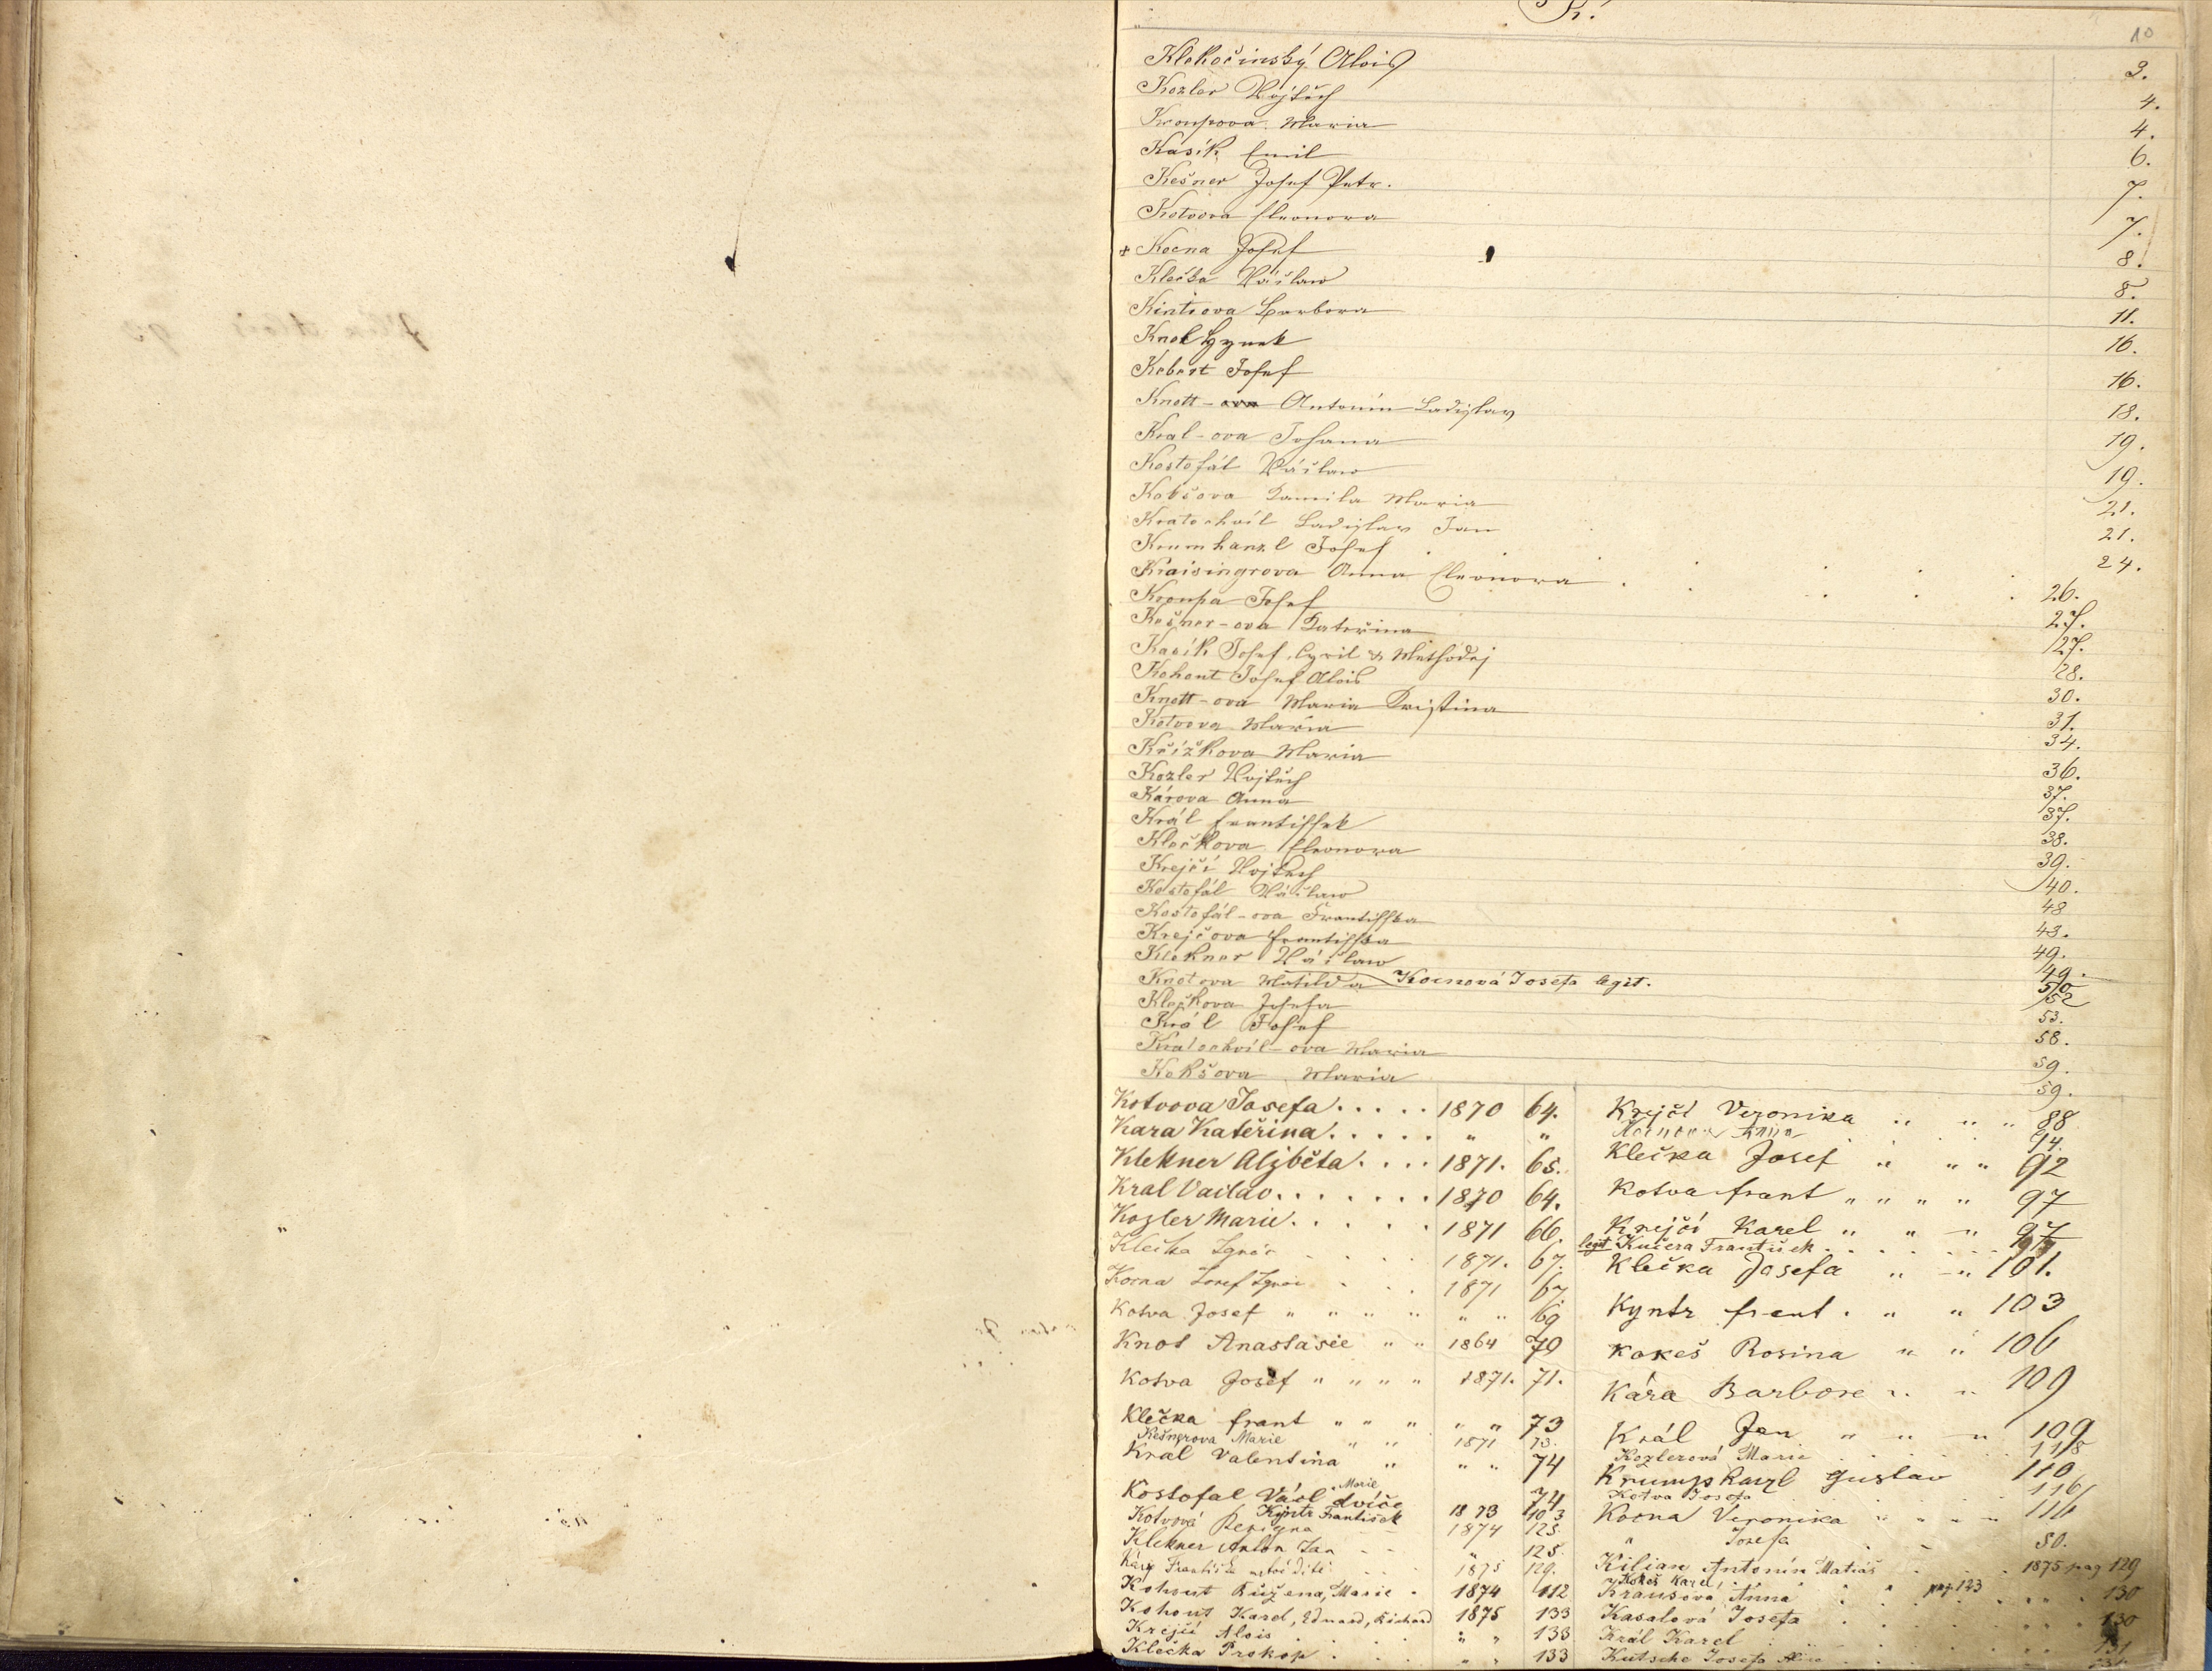 K.
10
Klekočinský Alois 3.
Kozler Vojtěch 4.
Kroupova Maria 4.
Kasík Emil 6.
Kešner Josef Petr. 7.
Kotvova Eleonora 7.
+ Kocna Josef 8.
Klečka Václaw 8.
Kintrova Barbora 11.
Knol Hynek 16.
Kebert Josef 16.
Knott- Antonín Ladislav 18.
Kral-ova Johana 19.
Kostofál Václaw 19.
Kokšova Kamila Maria 21.
Kratochvíl Ladislav Jan 21.
Krumhanzl Josef 24.
Kraisingrova Anna Eleonora 26.
Kroupa Josef 27.
Kešner-ova Kateřina 27.
Kasík Josef Cyril & Methoděj 28.
Kohout Josef Alois 30.
Knott-ova Maria Kristina 31.
Kotvova Maria 34.
Křížkova Maria 36.
Kozler Vojtěch 37.
Károva Anna 37.
Král Frantissek 38.
Klečkova Eleonora 39.
Krejčí Vojtěch 40.
Kostofál Václaw 48
Kostofál-ova Frantisska 43.
Krejčova Frantisska 49.
Klekner Václaw 49.
Knotova Matilda Kocnová Josefa legit. 50
Klečkova Josefa 52
Král Josef 53.
Kratochvíl-ova Maria 58.
Kokšova Maria 59.
59.
Kotvova Josefa 1870 64.
Kara Kateřina " "
Klekner Alžběta 1871. 65.
Kral Vaclav 1870 64.
Kozler Marie 1871 66.
Klečka Ignác 1871. 67.
Kocna Josef Ignác 1871 67.
Kotva Josef " " " " " " 69
Knot Anastasie " " 1864 70
Kotva Josef " " " " 1871. 71.
Klečka frant " " " " " 73
Kešnerova Marie " " 1871 73.
Král Valentina " " " 74
Kostofal Václ Marie dvíče 74
Kyntr František 1873 103
Kotvová 1874 125.
Klekner Anton Jan " 125.
1875 129.
Kohout Bužena, Marie 1874 112
Kohout Karel, Eduard, Richard 1875 133
Krejčí Alois " " 133
Klečka Prokop " " 133
Krejčí Veronika " " " 88
Anna 14.
Klečka Josef " " " 92
Kotva frant " " " " 97
Krejčí Karel " " " 97
legit Kučera František
Klečka Josefa " " 101.
Kyntr frant. " " 103
Kokeš Rosina " " 106
Kára Barbore " " 109
Král Jan " " " 109
Kozlerová Marie 118
Krumphanzl Gustav 110
Kotva Josefa 116
Kocna Veronika " " " " 116
" Josefa 50.
Kilian Antonín Matiáš 1875 pag 129
Kokeš Karel pag. 123
Krausová Anna 130
Kasalová Josefa 130
Král Karel 131
Kutsche Josefa